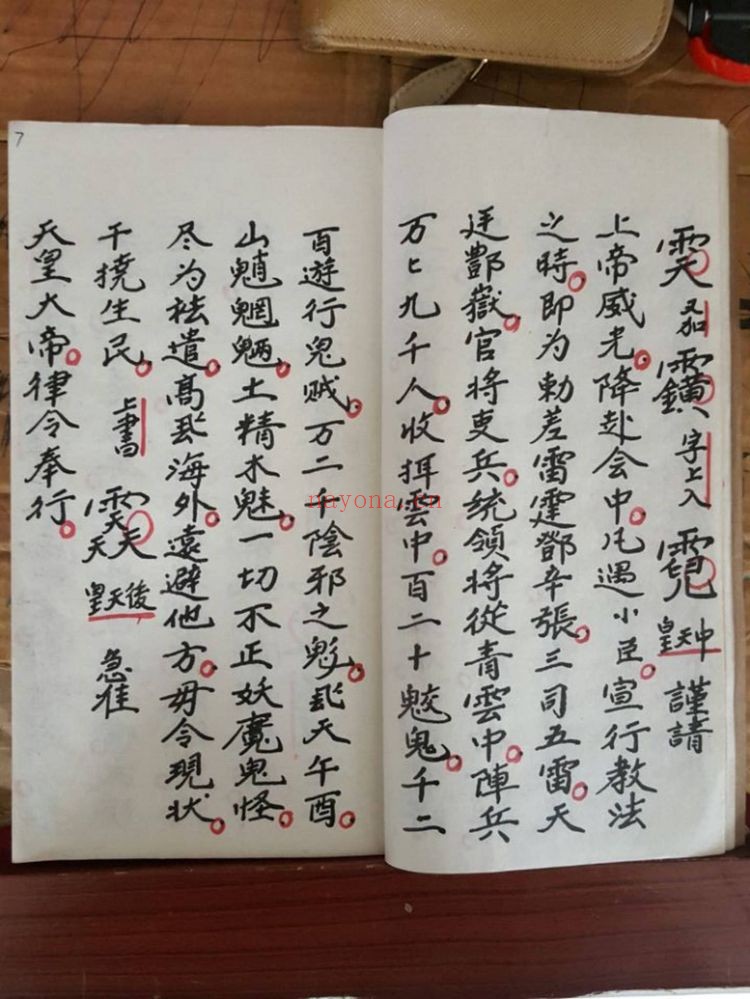 又加 字上入 皇天中 謹請
上帝威光。降赴会中。凡遇小臣。宣行教法
之時。即为勅差雷霆鄧辛張。三司五雷。天
廷酆嶽。官将吏兵。统領将從青雲中。陣兵
万七九千人。收捉雲中。百二十 鬼。千二
百遊行鬼贼。万二千陰邪之鬽。飛天午酉。
山魈魍魎。土精木魅。一切不正妖魔鬼怪。
尽为祛遣。高飛海外。遠避他方。毋令現状。
干撓生民。上書 皇天後 急准
天皇大帝。律令奉行。
7
nayona.cn